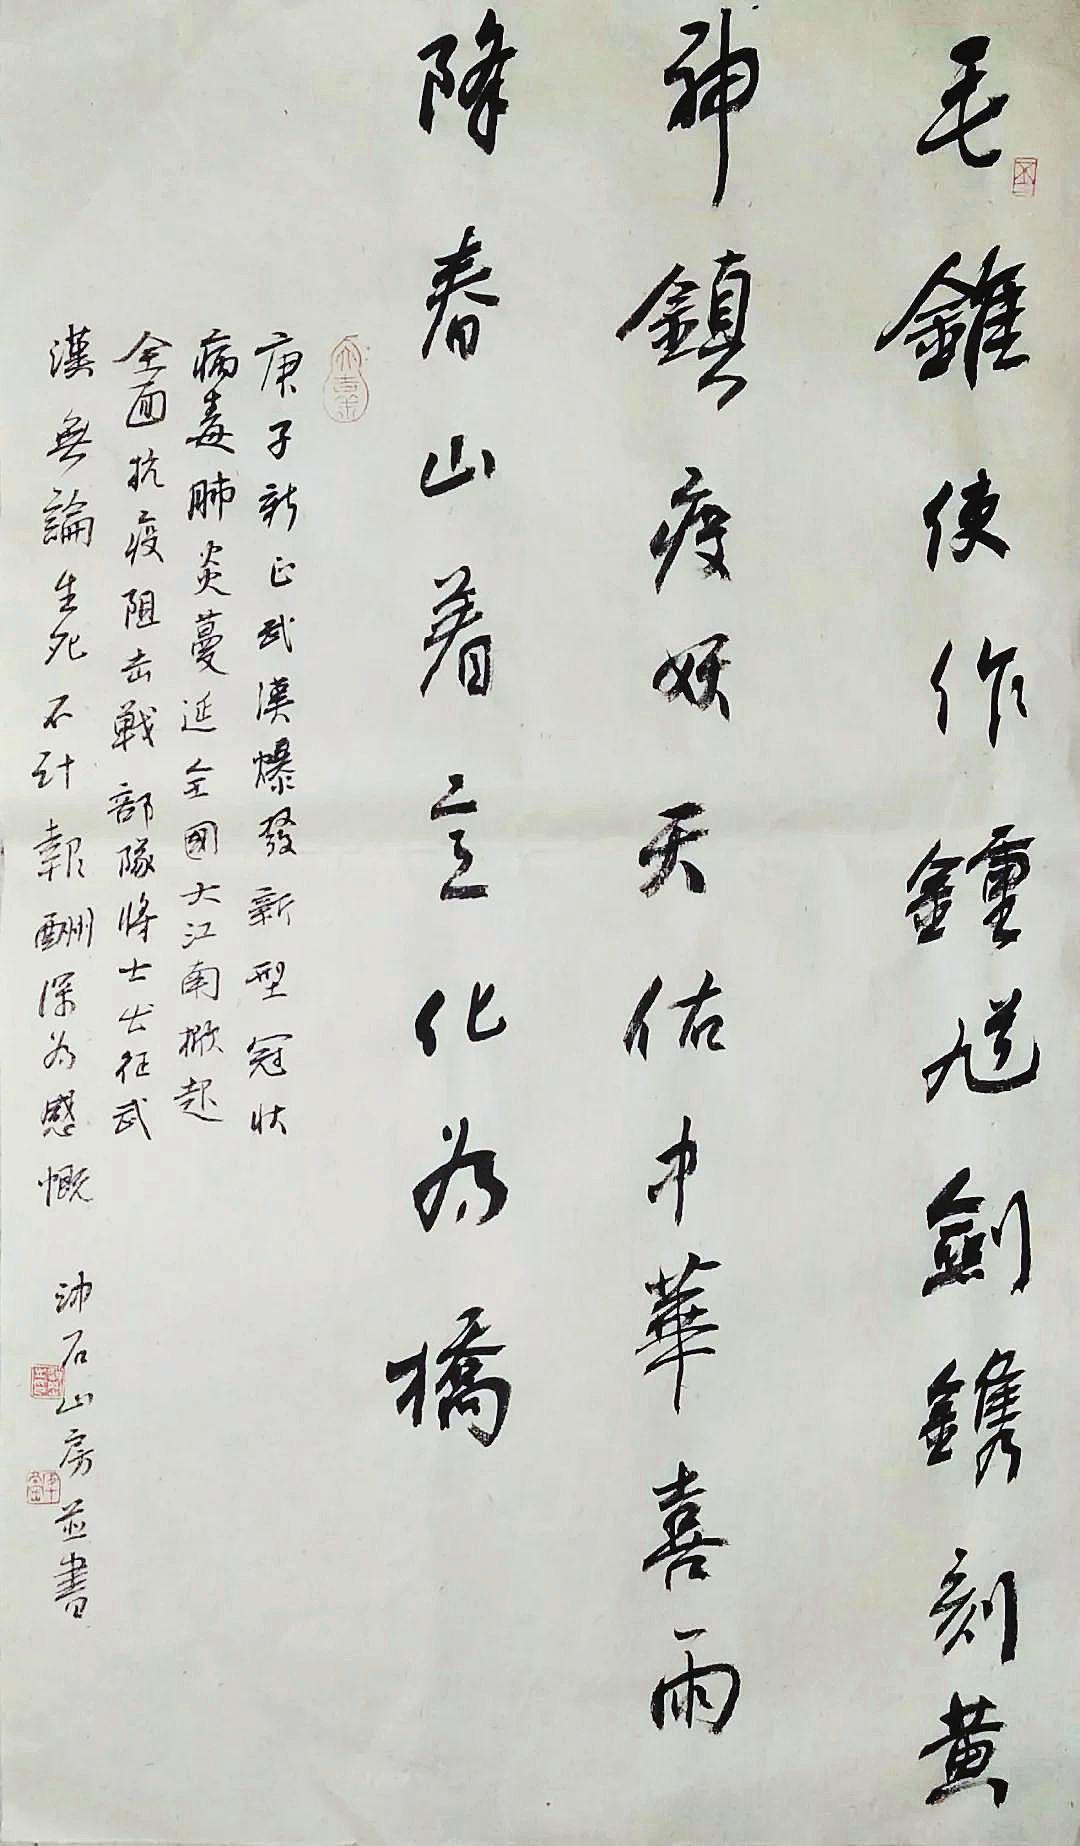 毛錐使作鍾馗劍鐫刻黄
神鎮疫妖天佑中華喜雨
降春山着意化為橋
庚子新正武漢爆發新型冠狀
病毒肺炎蔓延全國大江南掀起
全面抗疫阻击戰部隊將士出征武
漢無論生死不計報酬深為感慨 沛石山房並書
大吉金